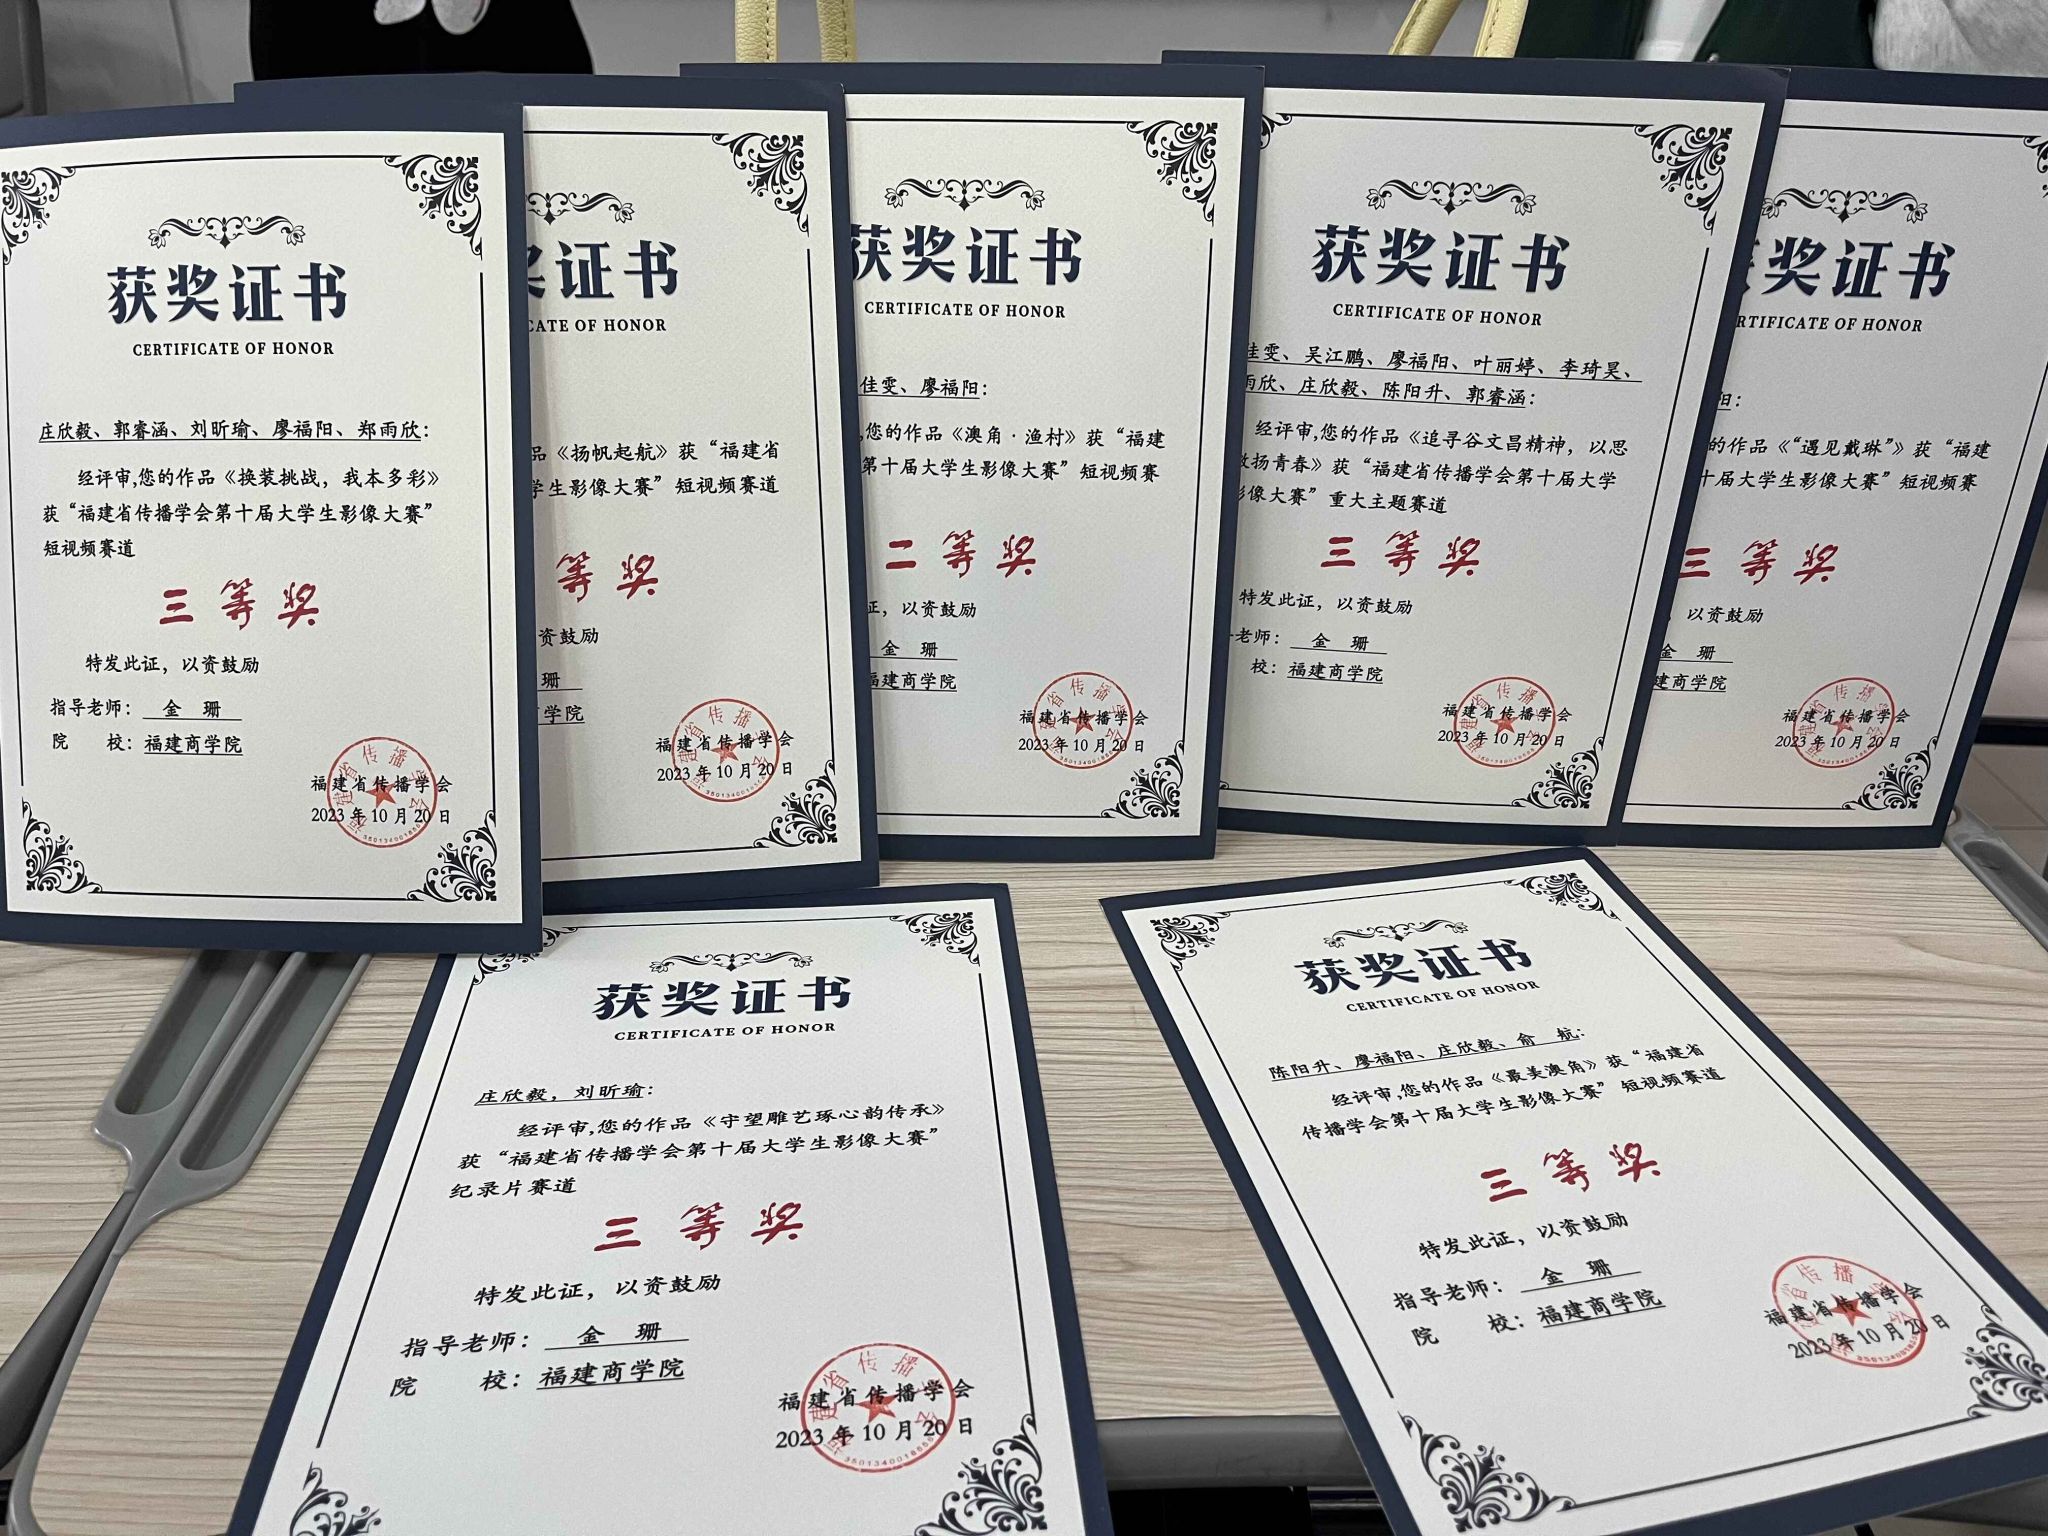 获奖证书
CERTIFICATE OF HONOR
庄欣毅、郭睿涵、刘昕瑜、廖福阳、郑雨欣:
经评审,您的作品《换装挑战，我本多彩》
获“福建省传播学会第十届大学生影像大赛”
短视频赛道
三等奖
特发此证，以资鼓励
指导老师: 金 珊
院 校: 福建商学院
福建省传播学会
2023年10月20日
奖证书
CATE OF HONOR
品《扬帆起航》获“福建省
学生影像大赛”短视频赛道
等奖
资鼓励
珊
学院
福建省传播学会
2023年10月20日
获奖证书
CERTIFICATE OF HONOR
佳雯、廖福阳:
,您的作品《澳角·渔村》获“福建
第十届大学生影像大赛”短视频赛
二等奖
证，以资鼓励
金 珊
福建商学院
福建省传播学会
2023年10月20日
获奖证书
CERTIFICATE OF HONOR
佳雯、吴江鹏、廖福阳、叶丽婷、李琦昊、
雨欣、庄欣毅、陈阳升、郭睿涵:
经评审,您的作品《追寻谷文昌精神，以思
扬青春》获“福建省传播学会第十届大学
影像大赛”重大主题赛道
三等奖
特发此证，以资鼓励
老师: 金 珊
校: 福建商学院
福建省传播学会
2023年10月20日
奖证书
RTIFICATE OF HONOR
阳:
的作品《“遇见戴琳”》获“福建
十届大学生影像大赛”短视频赛
三等奖
，以资鼓励
金 珊
建商学院
福建省传播学会
2023年10月20日
获奖证书
CERTIFICATE OF HONOR
庄欣毅，刘昕瑜:
经评审,您的作品《守望雕艺琢心韵传承》
获“福建省传播学会第十届大学生影像大赛”
纪录片赛道
三等奖
特发此证，以资鼓励
指导老师: 金 珊
院 校: 福建商学院
福建省传播学会
2023年10月20日
获奖证书
CERTIFICATE OF HONOR
陈阳升、廖福阳、庄欣毅、俞 航:
经评审,您的作品《最美澳角》获“福建省
传播学会第十届大学生影像大赛”短视频赛道
三等奖
特发此证，以资鼓励
指导老师: 金 珊
院 校: 福建商学院
福建省传播学会
2023年10月20日